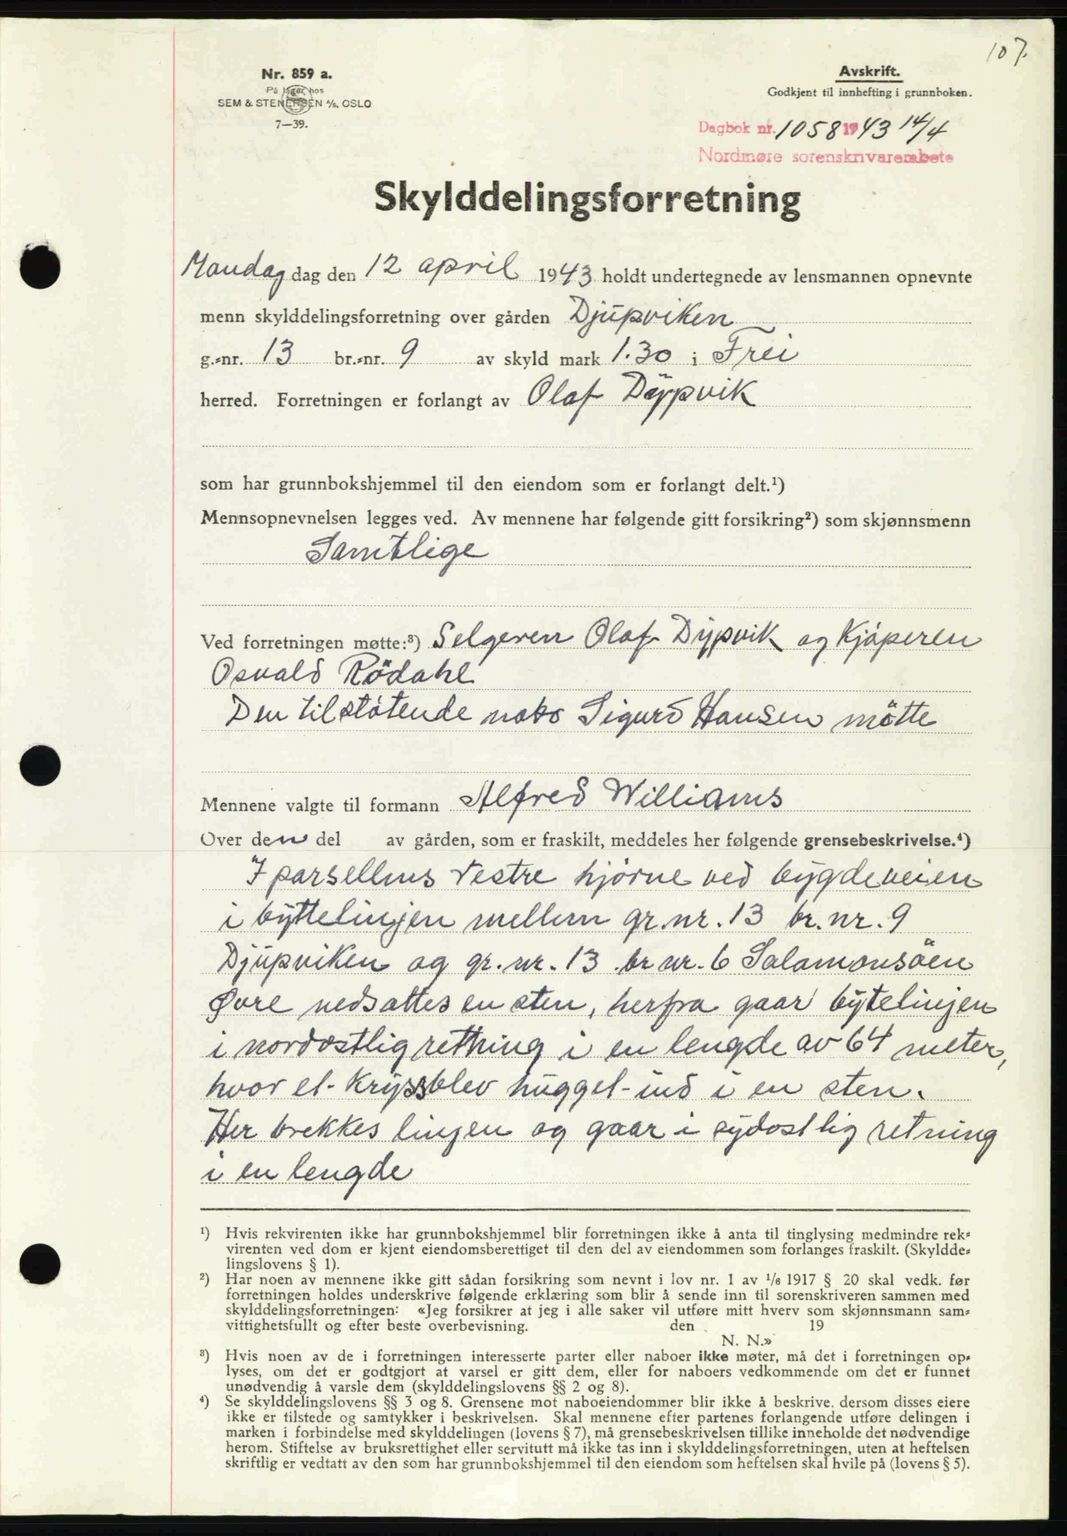 107.
Nr. 859 a.
På lager hos
SEM & STENERSEN A/S, OSLO
7—39.
Avskrift.
Godkjent til innhefting i grunnboken.
Dagbok nr. 1058 1943 14/4
Nordmøre sorenskriverembete
Skylddelingsforretning
Mandag dag den 12 april 1943 holdt undertegnede av lensmannen opnevnte
menn skylddelingsforretning over gården Djupviken
g.-nr. 13 br.-nr. 9 av skyld mark 1.30 i Frei
herred. Forretningen er forlangt av Olaf Dypvik
som har grunnbokshjemmel til den eiendom som er forlangt delt.¹)
Mennsopnevnelsen legges ved. Av mennene har følgende gitt forsikring²) som skjønnsmenn
Samtlige
Ved forretningen møtte:³) Selgeren Olaf Dypvik og Kjöperen
Osvald Rödahl
Den tilstötende nabo Sigurd Hansen mötte
Mennene valgte til formann Alfred Williams
Over den del av gården, som er fraskilt, meddeles her følgende grensebeskrivelse.⁴)
I parsellens vestre hjörne ved bygdeveien
i byttelinjen mellem gr.nr. 13 br. nr. 9
Djupviken og gr. nr. 13 br nr. 6 Salamonsöen
Øvre nedsattes en sten, herfra gaar bytelinjen
i nordostlig rettning i en lengde av 64 meter,
hvor et kryss blev hugget ind i en sten.
Her brekkes linjen og gaar i sydostlig retning
i en lengde
¹) Hvis rekvirenten ikke har grunnbokshjemmel blir forretningen ikke å anta til tinglysing medmindre rek-
virenten ved dom er kjent eiendomsberettiget til den del av eiendommen som forlanges fraskilt. (Skyldde-
lingslovens § 1).
²) Har noen av mennene ikke gitt sådan forsikring som nevnt i lov nr. 1 av 1/6 1917 § 20 skal vedk. før
forretningen holdes underskrive følgende erklæring som blir å sende inn til sorenskriveren sammen med
skylddelingsforretningen: «Jeg forsikrer at jeg i alle saker vil utføre mitt hverv som skjønnsmann sam-
vittighetsfullt og efter beste overbevisning. den 19
N. N.»
³) Hvis noen av de i forretningen interesserte parter eller naboer ikke møter, må det i forretningen op-
lyses, om det er godtgjort at varsel er gitt dem, eller for naboers vedkommende om det er funnet
unødvendig å varsle dem (skylddelingslovens §§ 2 og 8).
⁴) Se skylddelingslovens §§ 3 og 8. Grensene mot naboeiendommer blir ikke å beskrive, dersom disses eiere
ikke er tilstede og samtykker i beskrivelsen. Skal mennene efter partenes forlangende utføre delingen i
marken i forbindelse med skylddelingen (lovens § 7), må grensebeskrivelsen tillike inneholde det nødvendige
herom. Stiftelse av bruksrettighet eller servitutt må ikke tas inn i skylddelingsforretningen, uten at heftelsen
skriftlig er vedtatt av den som har grunnbokshjemmel til den eiendom som heftelsen skal hvile på (lovens § 5).